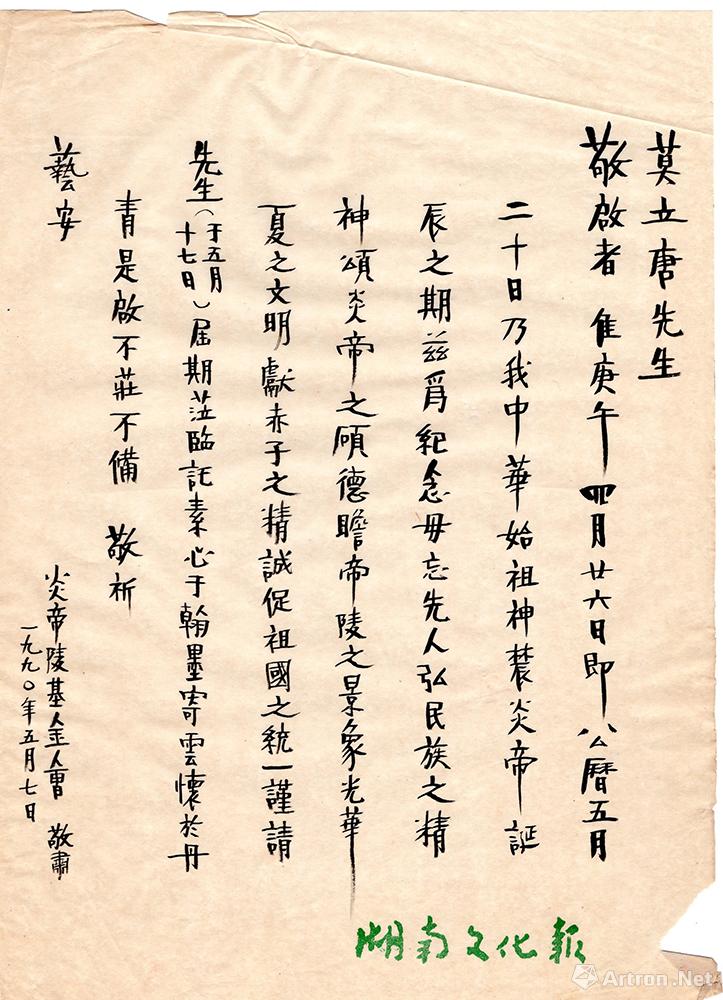 莫立唐先生
敬啟者 隹庚午四月廿六日即公曆五月
二十日乃我中華始祖神農炎帝誕
辰之期兹爲紀念毋忘先人弘民族之精
神頌炎帝之碩德瞻帝陵之景象光華
夏之文明獻赤子之精誠促祖國之統一謹請
先生(于五月十七日)届期蒞臨託素心于翰墨寄雲懷於丹
青是啟不莊不備 敬祈
藝安
炎帝陵基金會 敬肅
一九九〇年五月七日
湖南文化報
Artron.Net